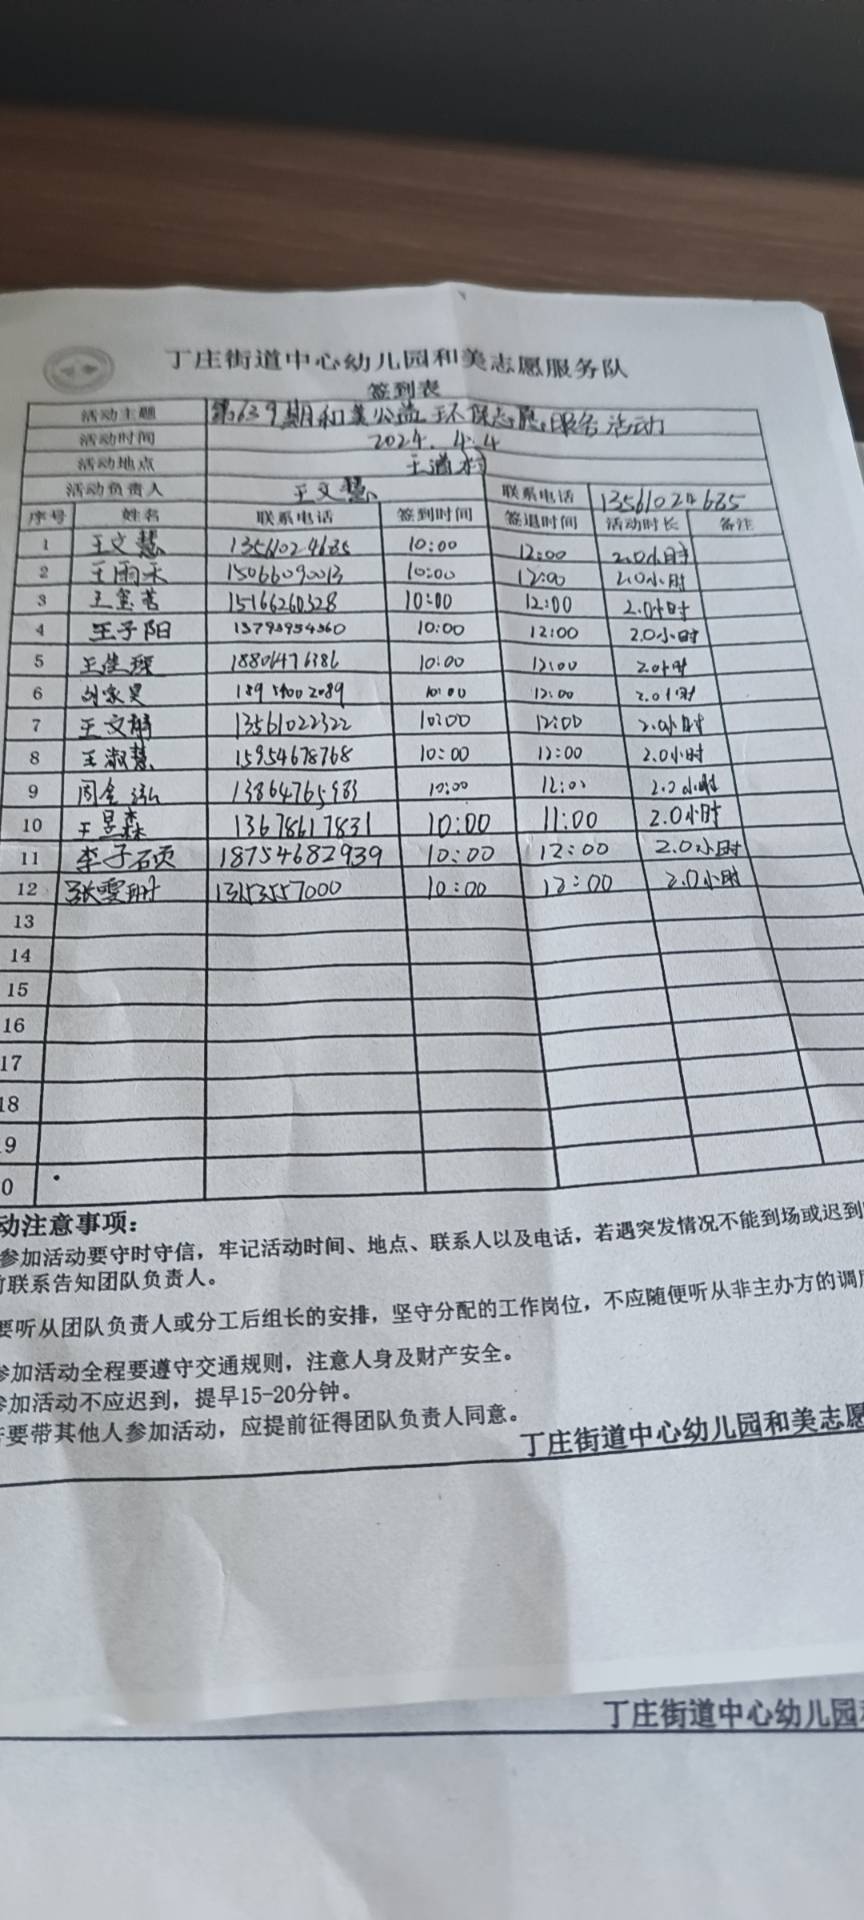 丁庄街道中心幼儿园和美志愿服务队
签到表
活动主题 第639期和美公益环保志愿服务活动
活动时间 2024.4.4
活动地点 王道村
活动负责人 王文慧 联系电话 13561024685
序号 姓名 联系电话 签到时间 签退时间 活动时长 备注
1 王文慧 13561024685 10:00 12:00 2.0小时
2 王雨禾 15066090013 10:00 12:00 2.0小时
3 王 15166260328 10:00 12:00 2.0小时
4 王子阳 13793954360 10:00 12:00 2.0小时
5 王佳 18806476386 10:00 12:00 2.0小时
6 刘家昊 10:00 12:00 2.0小时
7 王文 13561022322 10:00 12:00 2.0小时
8 王淑慧 15954678768 10:00 12:00 2.0小时
9 周金泓 13864765983 10:00 12:00 2.0小时
10 王昱森 13678617831 10:00 11:00 2.0小时
11 李子硕 18754682939 10:00 12:00 2.0小时
12 张雯珊 13153557000 10:00 12:00 2.0小时
13
14
15
16
17
18
9
0
动注意事项:
参加活动要守时守信，牢记活动时间、地点、联系人以及电话，若遇突发情况不能到场或迟到
前联系告知团队负责人。
要听从团队负责人或分工后组长的安排，坚守分配的工作岗位，不应随便听从非主办方的调
参加活动全程要遵守交通规则，注意人身及财产安全。
参加活动不应迟到，提早15-20分钟。
要带其他人参加活动，应提前征得团队负责人同意。
丁庄街道中心幼儿园和美志愿
丁庄街道中心幼儿园